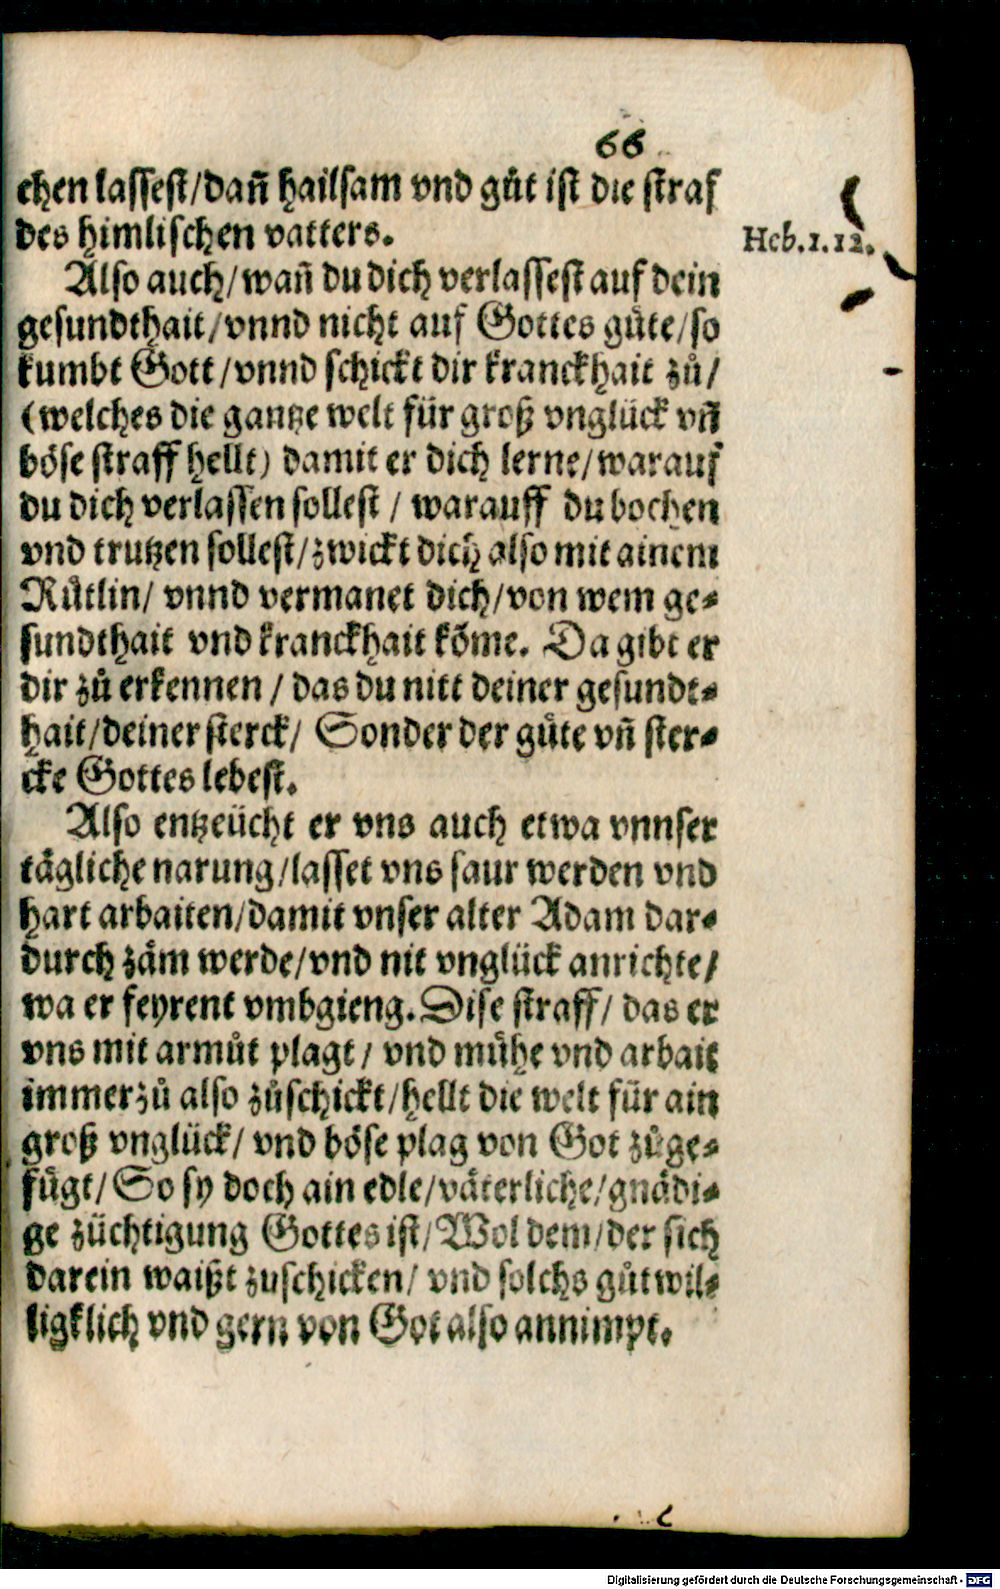 66
chen lassest/dañ hailsam vnd gůt ist die straf
des himlischen vatters.
Heb.1.12.
Also auch/wañ du dich verlassest auf dein
gesundthait/vnnd nicht auf Gottes güte/so
kumbt Gott/vnnd schickt dir kranckhait zů/
(welches die gantze welt für groß vnglück vñ
böse straff hellt) damit er dich lerne/warauf
du dich verlassen sollest / warauff du bochen
vnd trutzen sollest/zwickt dich also mit ainem
Růtlin/ vnnd vermanet dich/von wem ge-
sundthait vnd kranckhait kõme. Da gibt er
dir zů erkennen / das du nitt deiner gesundt-
hait/deiner sterck/ Sonder der güte vñ ster-
cke Gottes lebest.
Also entzeücht er vns auch etwa vnnser
tägliche narung/lasset vns saur werden vnd
hart arbaiten/damit vnser alter Adam dar-
durch zäm werde/vnd nit vnglück anrichte/
wa er feyrent vmbgieng. Dise straff/ das er
vns mit armůt plagt / vnd mühe vnd arbait
immerzů also zůschickt/hellt die welt für ain
groß vnglück/ vnd böse plag von Got zůge-
fügt/ So sy doch ain edle/väterliche/gnädi-
ge züchtigung Gottes ist/Wol dem/der sich
darein waißt zuschicken/ vnd solchs gůtwil-
ligklich vnd gern von Got also annimpt.
Digitalisierung gefördert durch die Deutsche Forschungsgemeinschaft - DFG